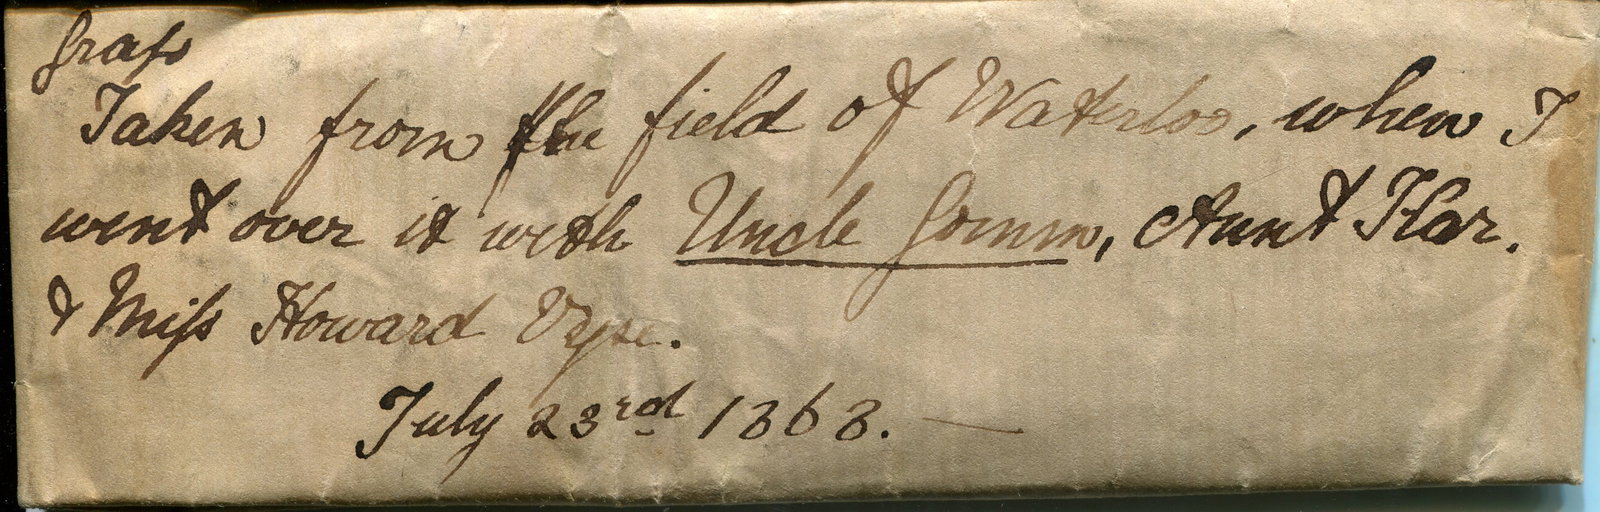 Grass
Taken from the field of Waterloo, when I
went over it with Uncle Gomm, Aunt Har.
& Miss Howard Vyse.
July 23rd 1868.